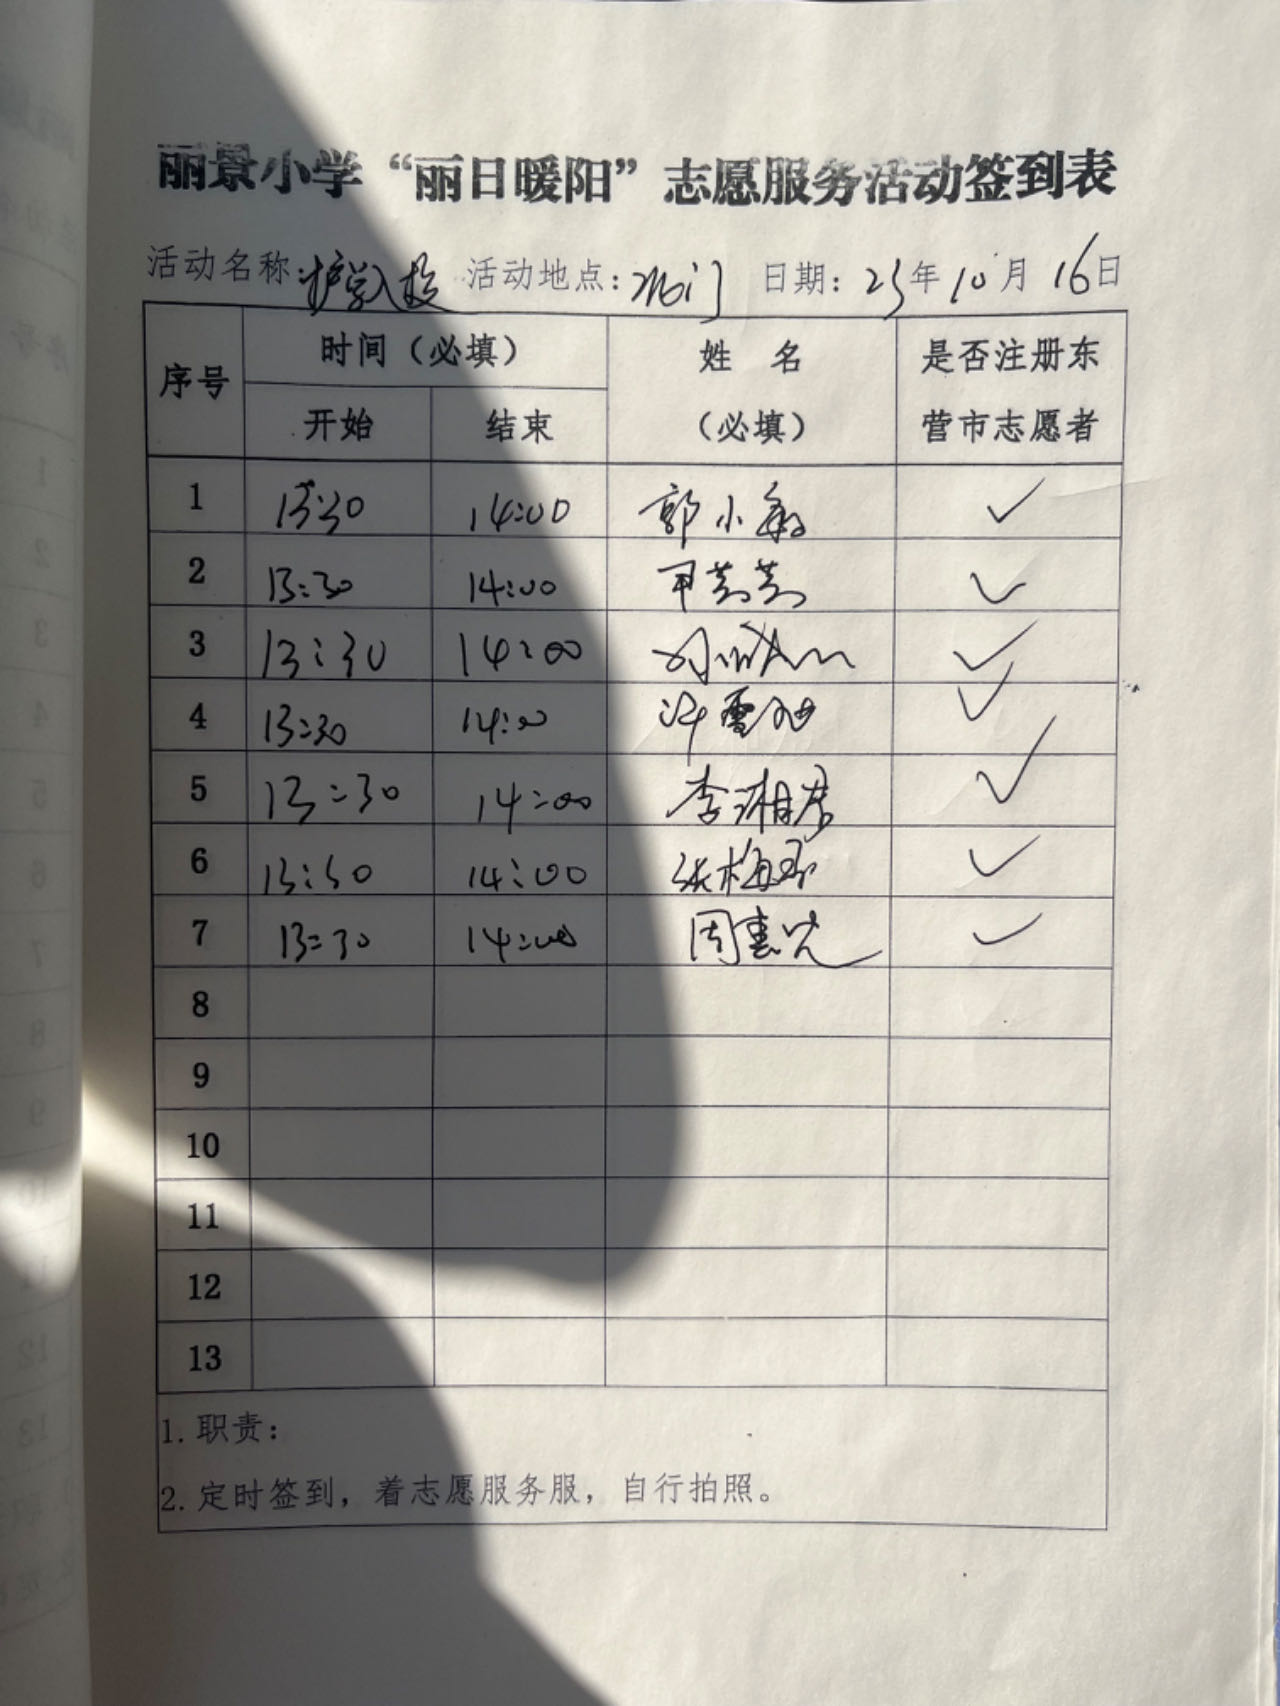 丽景小学“丽日暖阳”志愿服务活动签到表
活动名称:护学入校 活动地点: 北门 日期: 23年10月16日
序号 时间（必填） 姓 名（必填） 是否注册东营市志愿者
开始 结束
1 13:30 14:00 郭小敏 ✓
2 13:30 14:00 ✓
3 13:30 14:00 ✓
4 13:30 14:00 ✓
5 13:30 14:00 李湘君 ✓
6 13:30 14:00 张梅 ✓
7 13:30 14:00 周 ✓
8
9
10
11
12
13
1. 职责：
2. 定时签到，着志愿服务服，自行拍照。